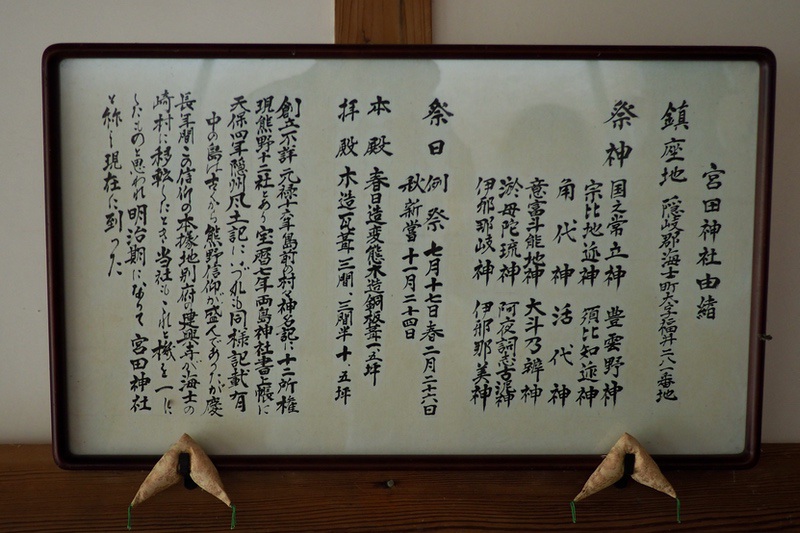 宮田神社由緒
鎮座地 隠岐郡海士町大字福井二八一番地
祭神 国之常立神 豊雲野神
宗比地迩神 須比知迩神
角代神 活代神
意富斗能地神 大斗乃辨神
淤母陀琉神 阿夜訶志古泥神
伊那那岐神 伊那那美神
祭日 例祭 七月十七日 春二月二六日
秋新嘗 十一月二十四日
本殿 春日造変態木造銅板葺 一五坪
拝殿 木造瓦葺 三間、三間半 十、五坪
創立不詳 元禄十六年島前の村々神名記に十二所権
現熊野十二社とあり宝暦七年両島神社書上帳に
天保四年隠州風土記にいづれも同様記載有
中の島は古くから熊野信仰が盛んであったが慶
長年間この信仰の本據地別府の建興寺が海士の
崎村に移転したとき当社もこれを機を一に
したものと思われ明治期になって宮田神社
と称し現在に到った